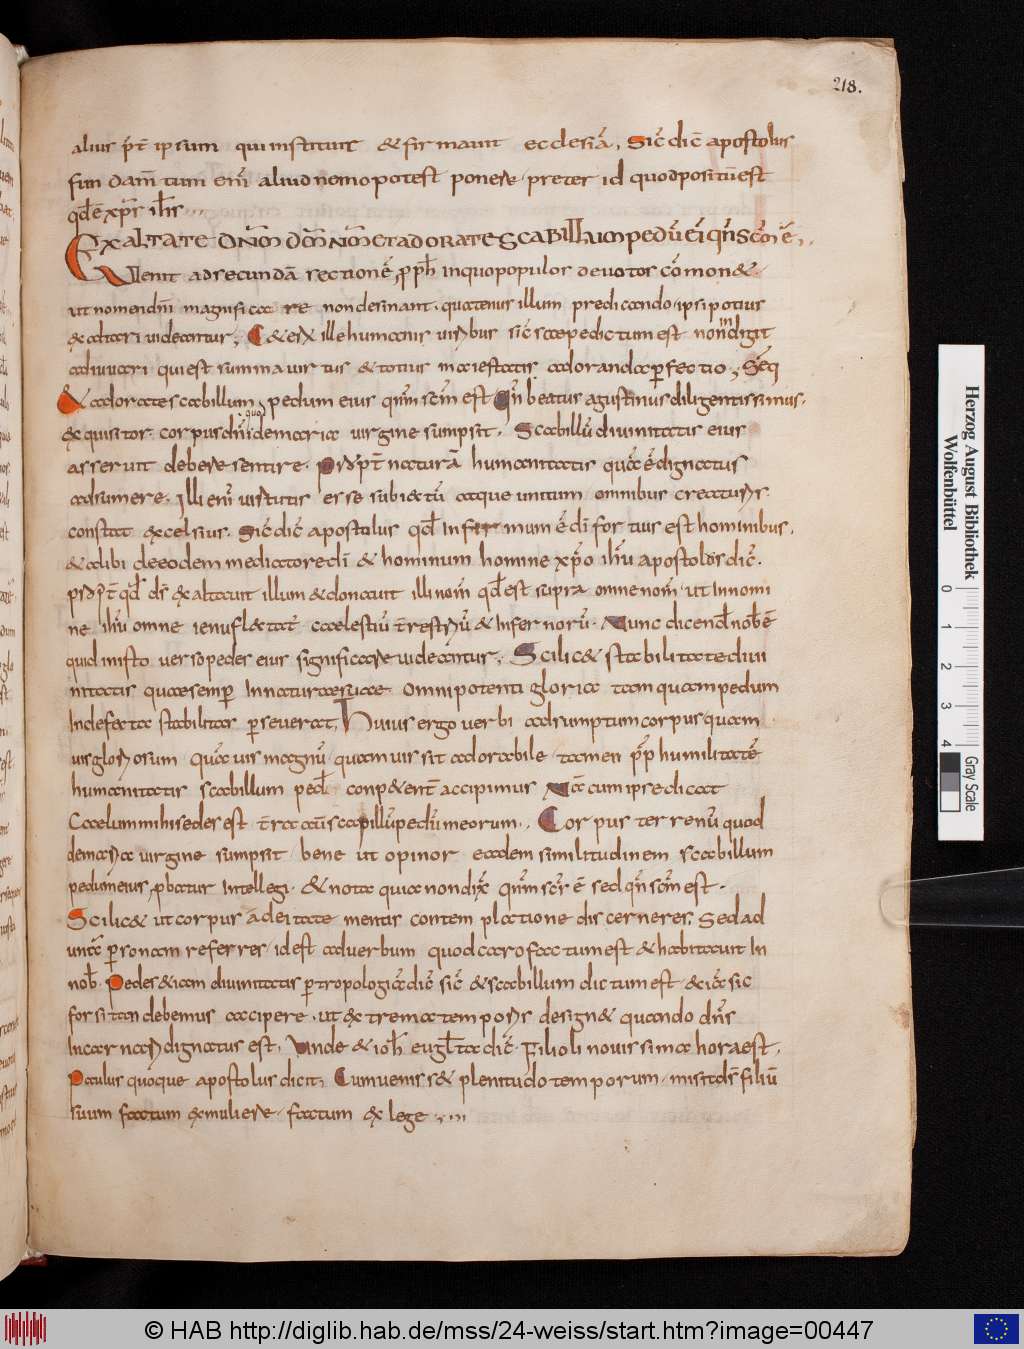 218.
alius p̄t ipsum qui instituit & firmauit ecclesiā. Sic̄ dic̄ apostolus
fundam̄tum eni̅ aliud nemo potest ponere preter id quod positū est
qd̄ ē xp̄s ih̄s
Exaltate dn̄m dm̄ nm̄ et adorate scabillum pedū ei qn̄ scm̄ ē.
Venit ad secundā sectionē, pph̄ in quo populos deuotos cōmon&
ut nomen dn̄i magnificare non desinant. quatenus illum predicando ipsi potius
exaltari uideantur. & et si ille humanis uiribus sic̄ saepe dictum est non indigit
adiuuari qui est summa uirtus & totius maiestatis adoranda perfectio; Seq̄
& adorate scabillum pedum eius qn̄m scm̄ est Qn̄ beatus agustinus diligentissimus
exquisitor. corpus dn̄i quod de maria uirgine sumpsit. Scabillū diuinitatis eius
asseruit debere sentire. naturā humanitatis quā ē dignatus
adsumere. Illi eni̅ uirtutis esse subiectū atque unitum omnibus creaturis
constat excelsius. Sic̄ dic̄ apostolus qd̄ infirmum ē dī fortius est hominibus.
& alibi de eodem mediatore dī & hominum homine xp̄o ih̄u apostolus dic̄.
qd̄ ds̄ exaltauit illum & donauit illi nom̄ qd̄ est supra omne nom̄ ut in nomi
ne ih̄u omne genu flectat̄ caelestiū t̄restriū & infernorū. Nunc dicend̄ nob̄ ē
quid in isto uerso pedes eius significare uideantur. Scilic& stabilitate diui
nitatis quae semp̄ in natura suae omnipotenti gloria tamquam pedum
indefecta stabilitas p̄seuerat, Huius ergo uerbi adsumptum corpus quam
uis gloriosum quāuis magnū quamuis sit adorabile tamen pp̄ humilitatē
humanitatis scabillum ped̄ conp&ent̄ accipimus Nā cum ipse dicat
Caelum mihi sedes est t̄ra autē scapillū pedū meorum. Corpus terrenū quod
de maria uirgine sumpsit bene ut opinor eadem similitudinem scabillum
pedum eius, p̄batur intellegi. & nota quia non dix̄ qn̄m scr̄ ē sed qn̄ scm̄ est.
Scilic& ut corpus a deitate mentis contemplatione discerneres. Sed ad
unā p̄sonam referres id est ad uerbum quod caro factum est & habitauit in
nob̄. Pedes &iam diuinitatis p̄ tropologiā dic̄ sic̄ & scabillum dictum est & iā sic
forsitan debemus accipere. ut extrema temporis design& quando dn̄s
incarnari dignatus est. Unde & ioh̄ eugl̄ta dic̄. Filioli nouissima hora est.
Paulus quoque apostolus dicit; Cum uenisset plenitudo temporum. misit ds̄ filiū
suum factum ex muliere. factum ex lege
Herzog August Bibliothek
Wolfenbüttel
0 1 2 3 4
Gray Scale
© HAB http://diglib.hab.de/mss/24-weiss/start.htm?image=00447